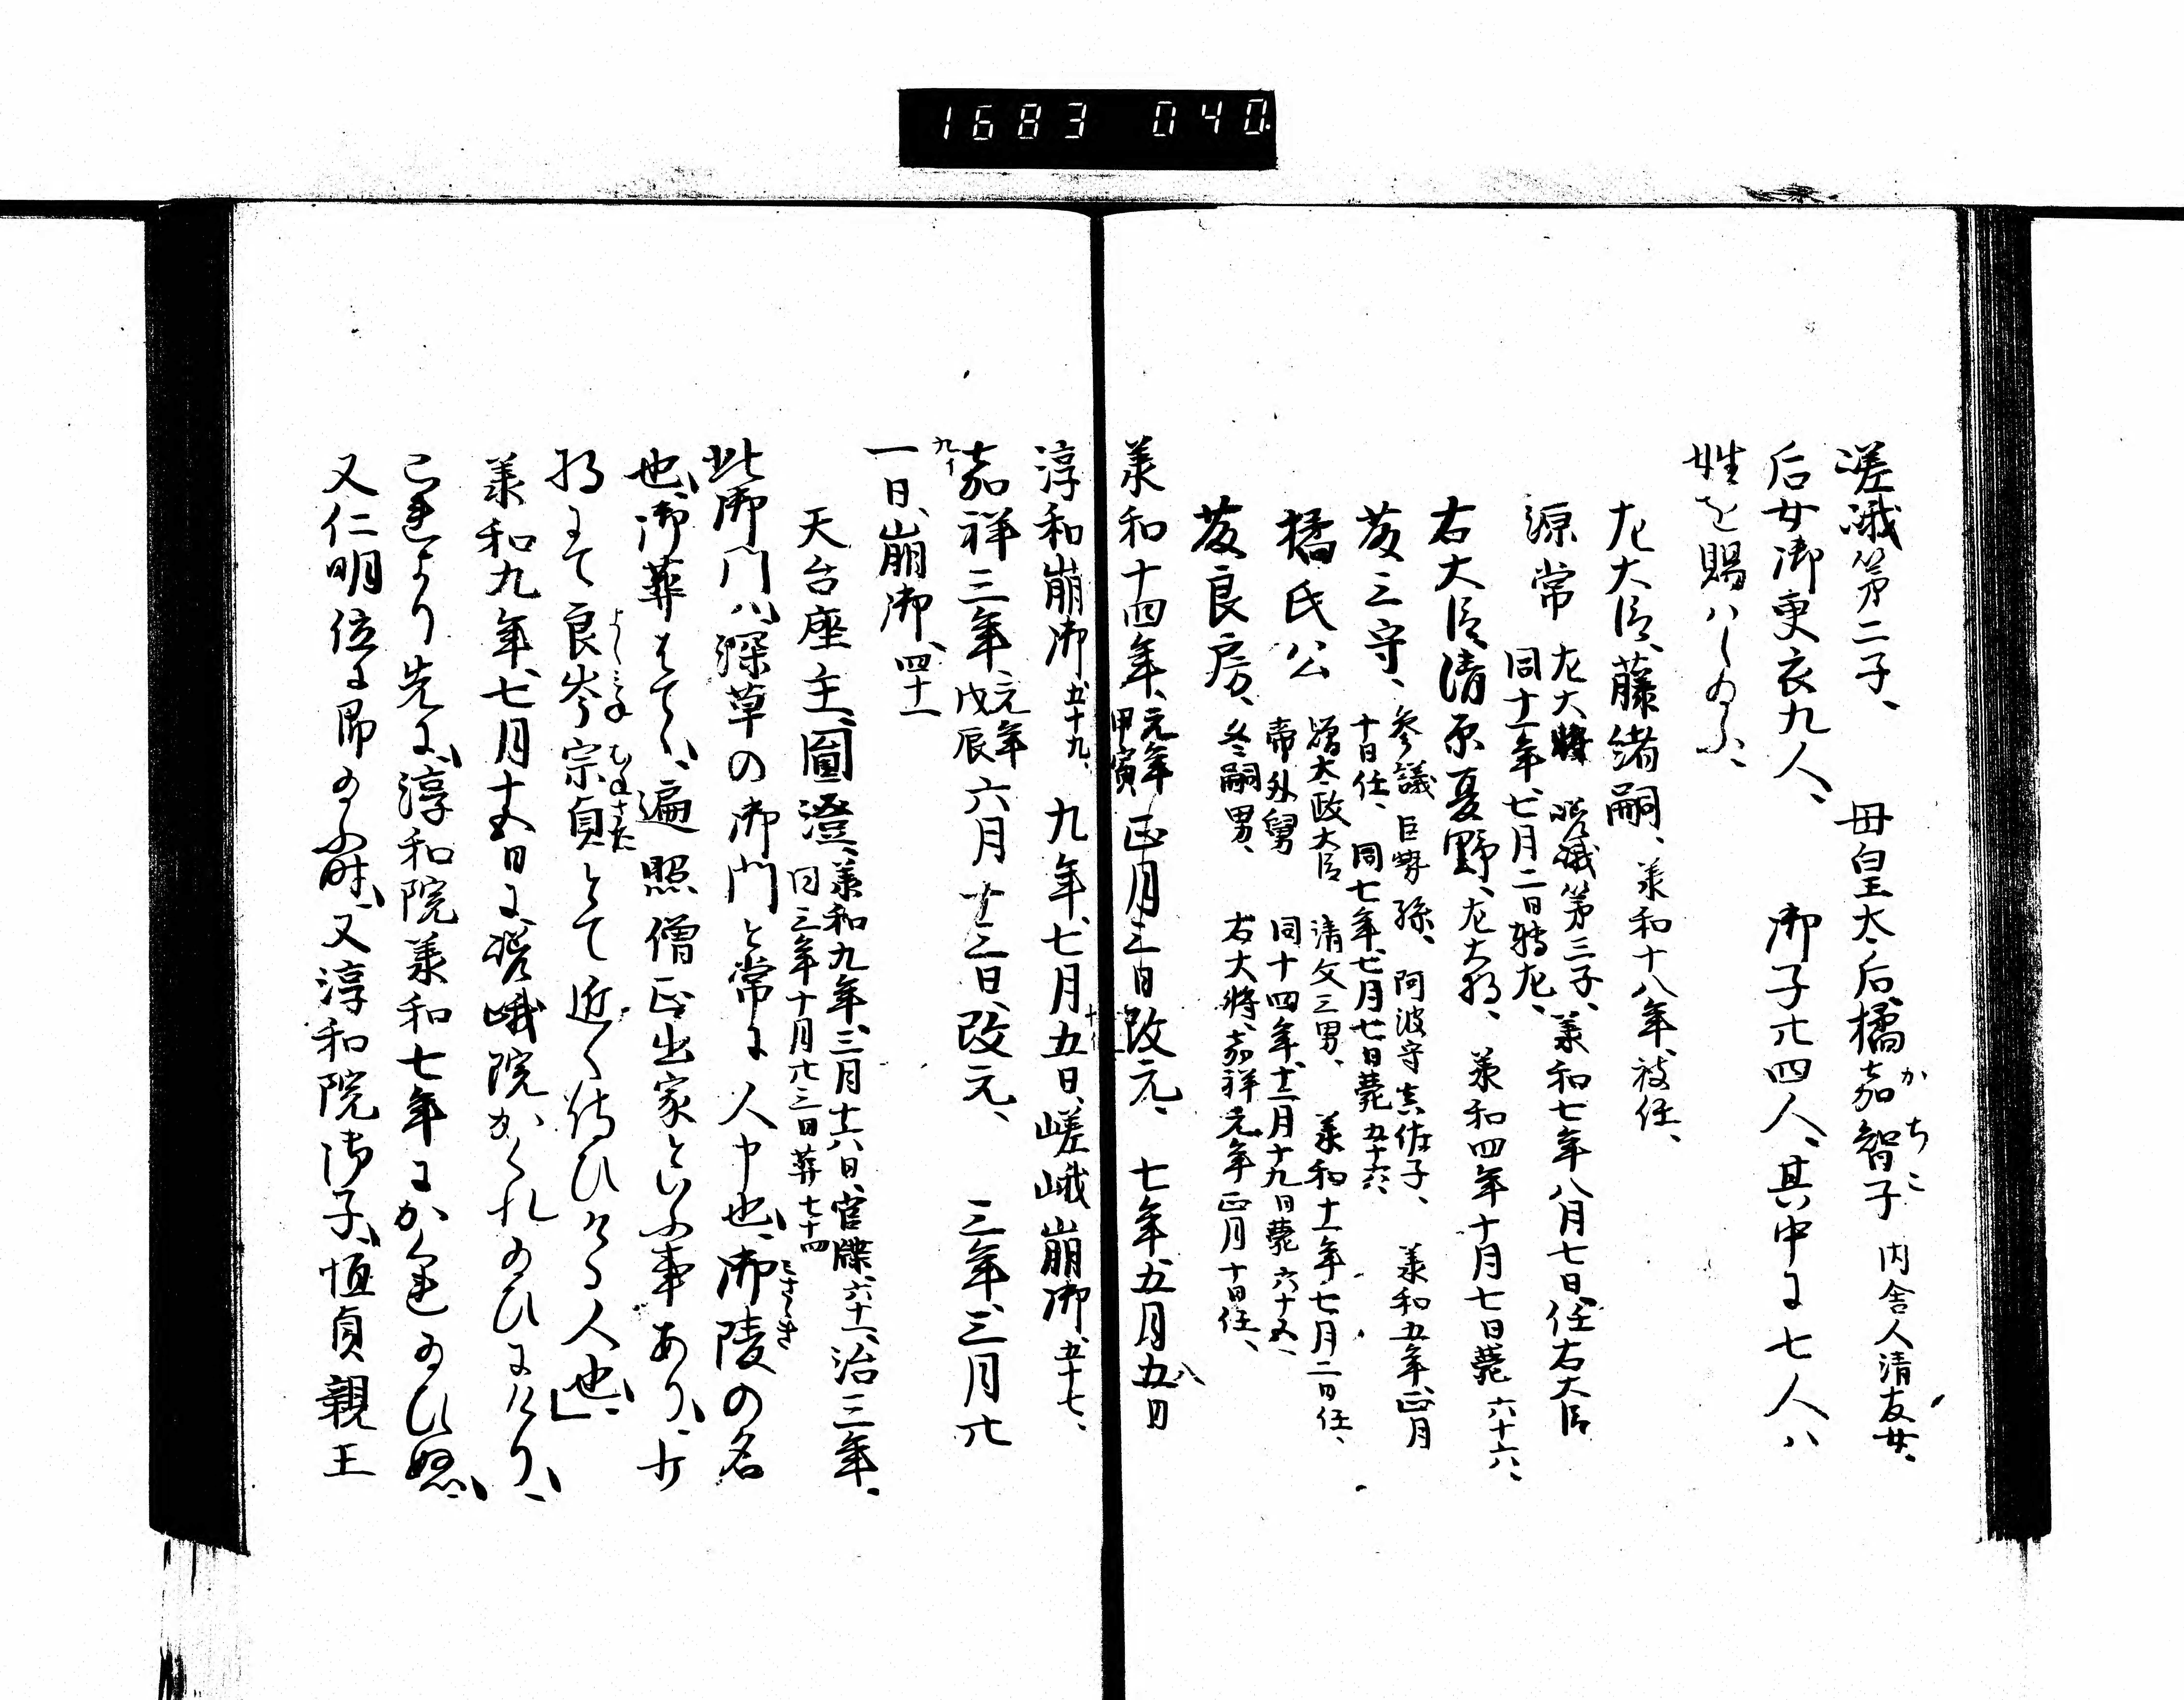 1683 040.
嵯峨第二子、　母皇太后橘嘉智子　内舎人清友女、
かちこ
后女御更衣九人、　御子廿四人、其中ニ七人ハ
姓を賜ハしめふ、
左大臣、藤緒嗣、承和十八年、被任、
源常　左大将　嵯峨第三子、承和七年八月七日、任右大臣
同十一年、七月二日転左、
右大臣、清原夏野、左大将、承和四年十月七日薨　六十六、
藤三守、参議巨勢孫、阿波守真佐子、承和五年、正月
十日任、同七年、七月七日薨五十六、
橘氏公　贈太政大臣　清友三男、承和十一年七月二日任、
帝外舅　同十四年、十二月十九日薨六十五、
藤良房、冬嗣男、右大将、嘉祥元年正月十日任、
承和十四年、元年甲寅　正月三日改元、七年、五月五日
八
淳和崩御、五十九、九年、七月五日、嵯峨崩御、五十七、
嘉祥三年、元年戊辰　六月十三日、改元、三年、三月廿
一日、崩御、四十一
天台座主、圓澄、承和九年、三月十六日、官牒、六十一、治三年、
同三年十月廿三日葬七十四
此御門ハ、深草の御門と常ニ人申也、御陵の名
みさゝき
也、御葬はてゝ、遍照僧正出家といふ事あり、少
将にて良岑宗貞とて近く侍ひける人也、
よしみね　むねさた
承和九年、七月十五日ニ、嵯峨院かくれ給ひにけり、
これより先に、淳和院承和七年にかくれ給ひぬ、
又仁明位に即給ふ時、又淳和院御子、恒貞親王